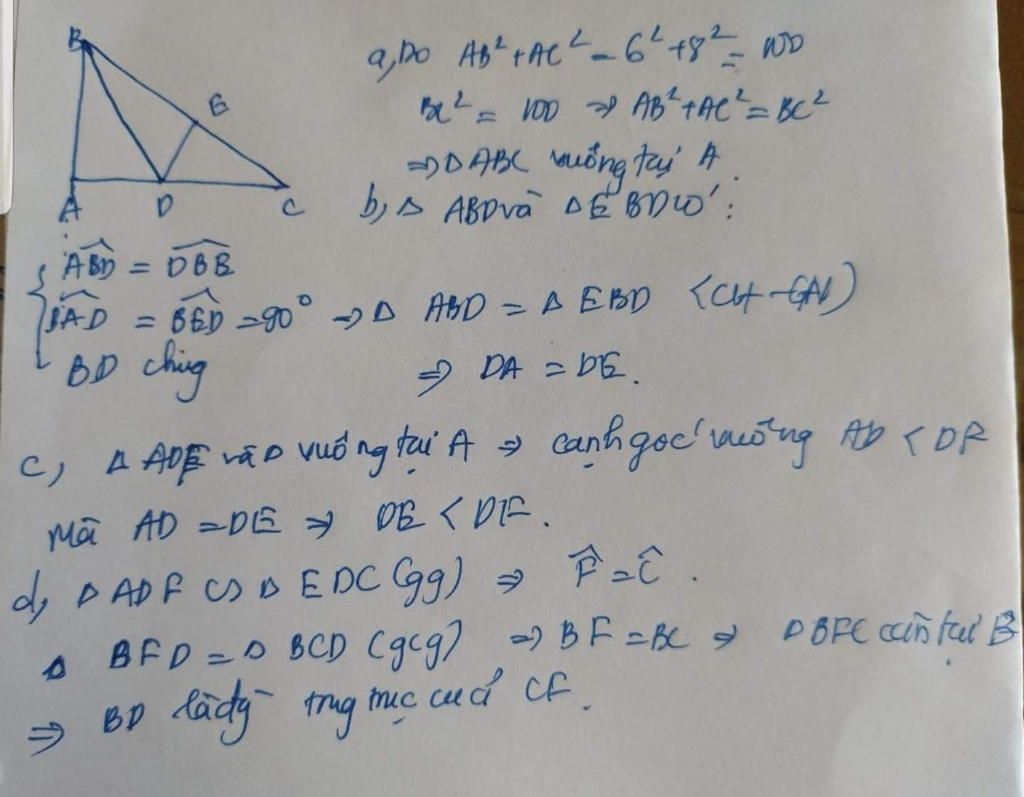 B
E
A D C
a, Do AB² + AC² = 6² + 8² = 100
BC² = 100 ⇒ AB² + AC² = BC²
⇒ Δ ABC vuông tại A.
b, Δ ABD và Δ EBD có:
ABD = DBE
BAD = BED = 90° ⇒ Δ ABD = Δ EBD (CH - GN)
BD chung ⇒ DA = DE.
c, Δ ADF vuông tại A ⇒ cạnh góc vuông AD < DF
Mà AD = DE ⇒ DE < DF.
d, Δ ADF ∽ Δ EDC (gg) ⇒ F = C.
Δ BFD = Δ BCD (gcg) ⇒ BF = BC ⇒ Δ BFC cân tại B
⇒ BD là đg trung trực của CF.